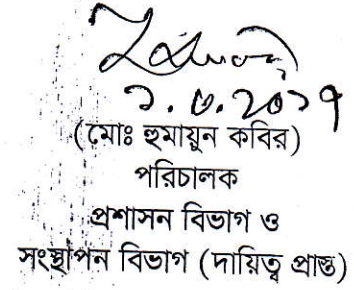 ১.৩.২০১৭
(মোঃ হুমায়ুন কবির)
পরিচালক
প্রশাসন বিভাগ ও
সংস্থাপন বিভাগ (দায়িত্ব প্রাপ্ত)